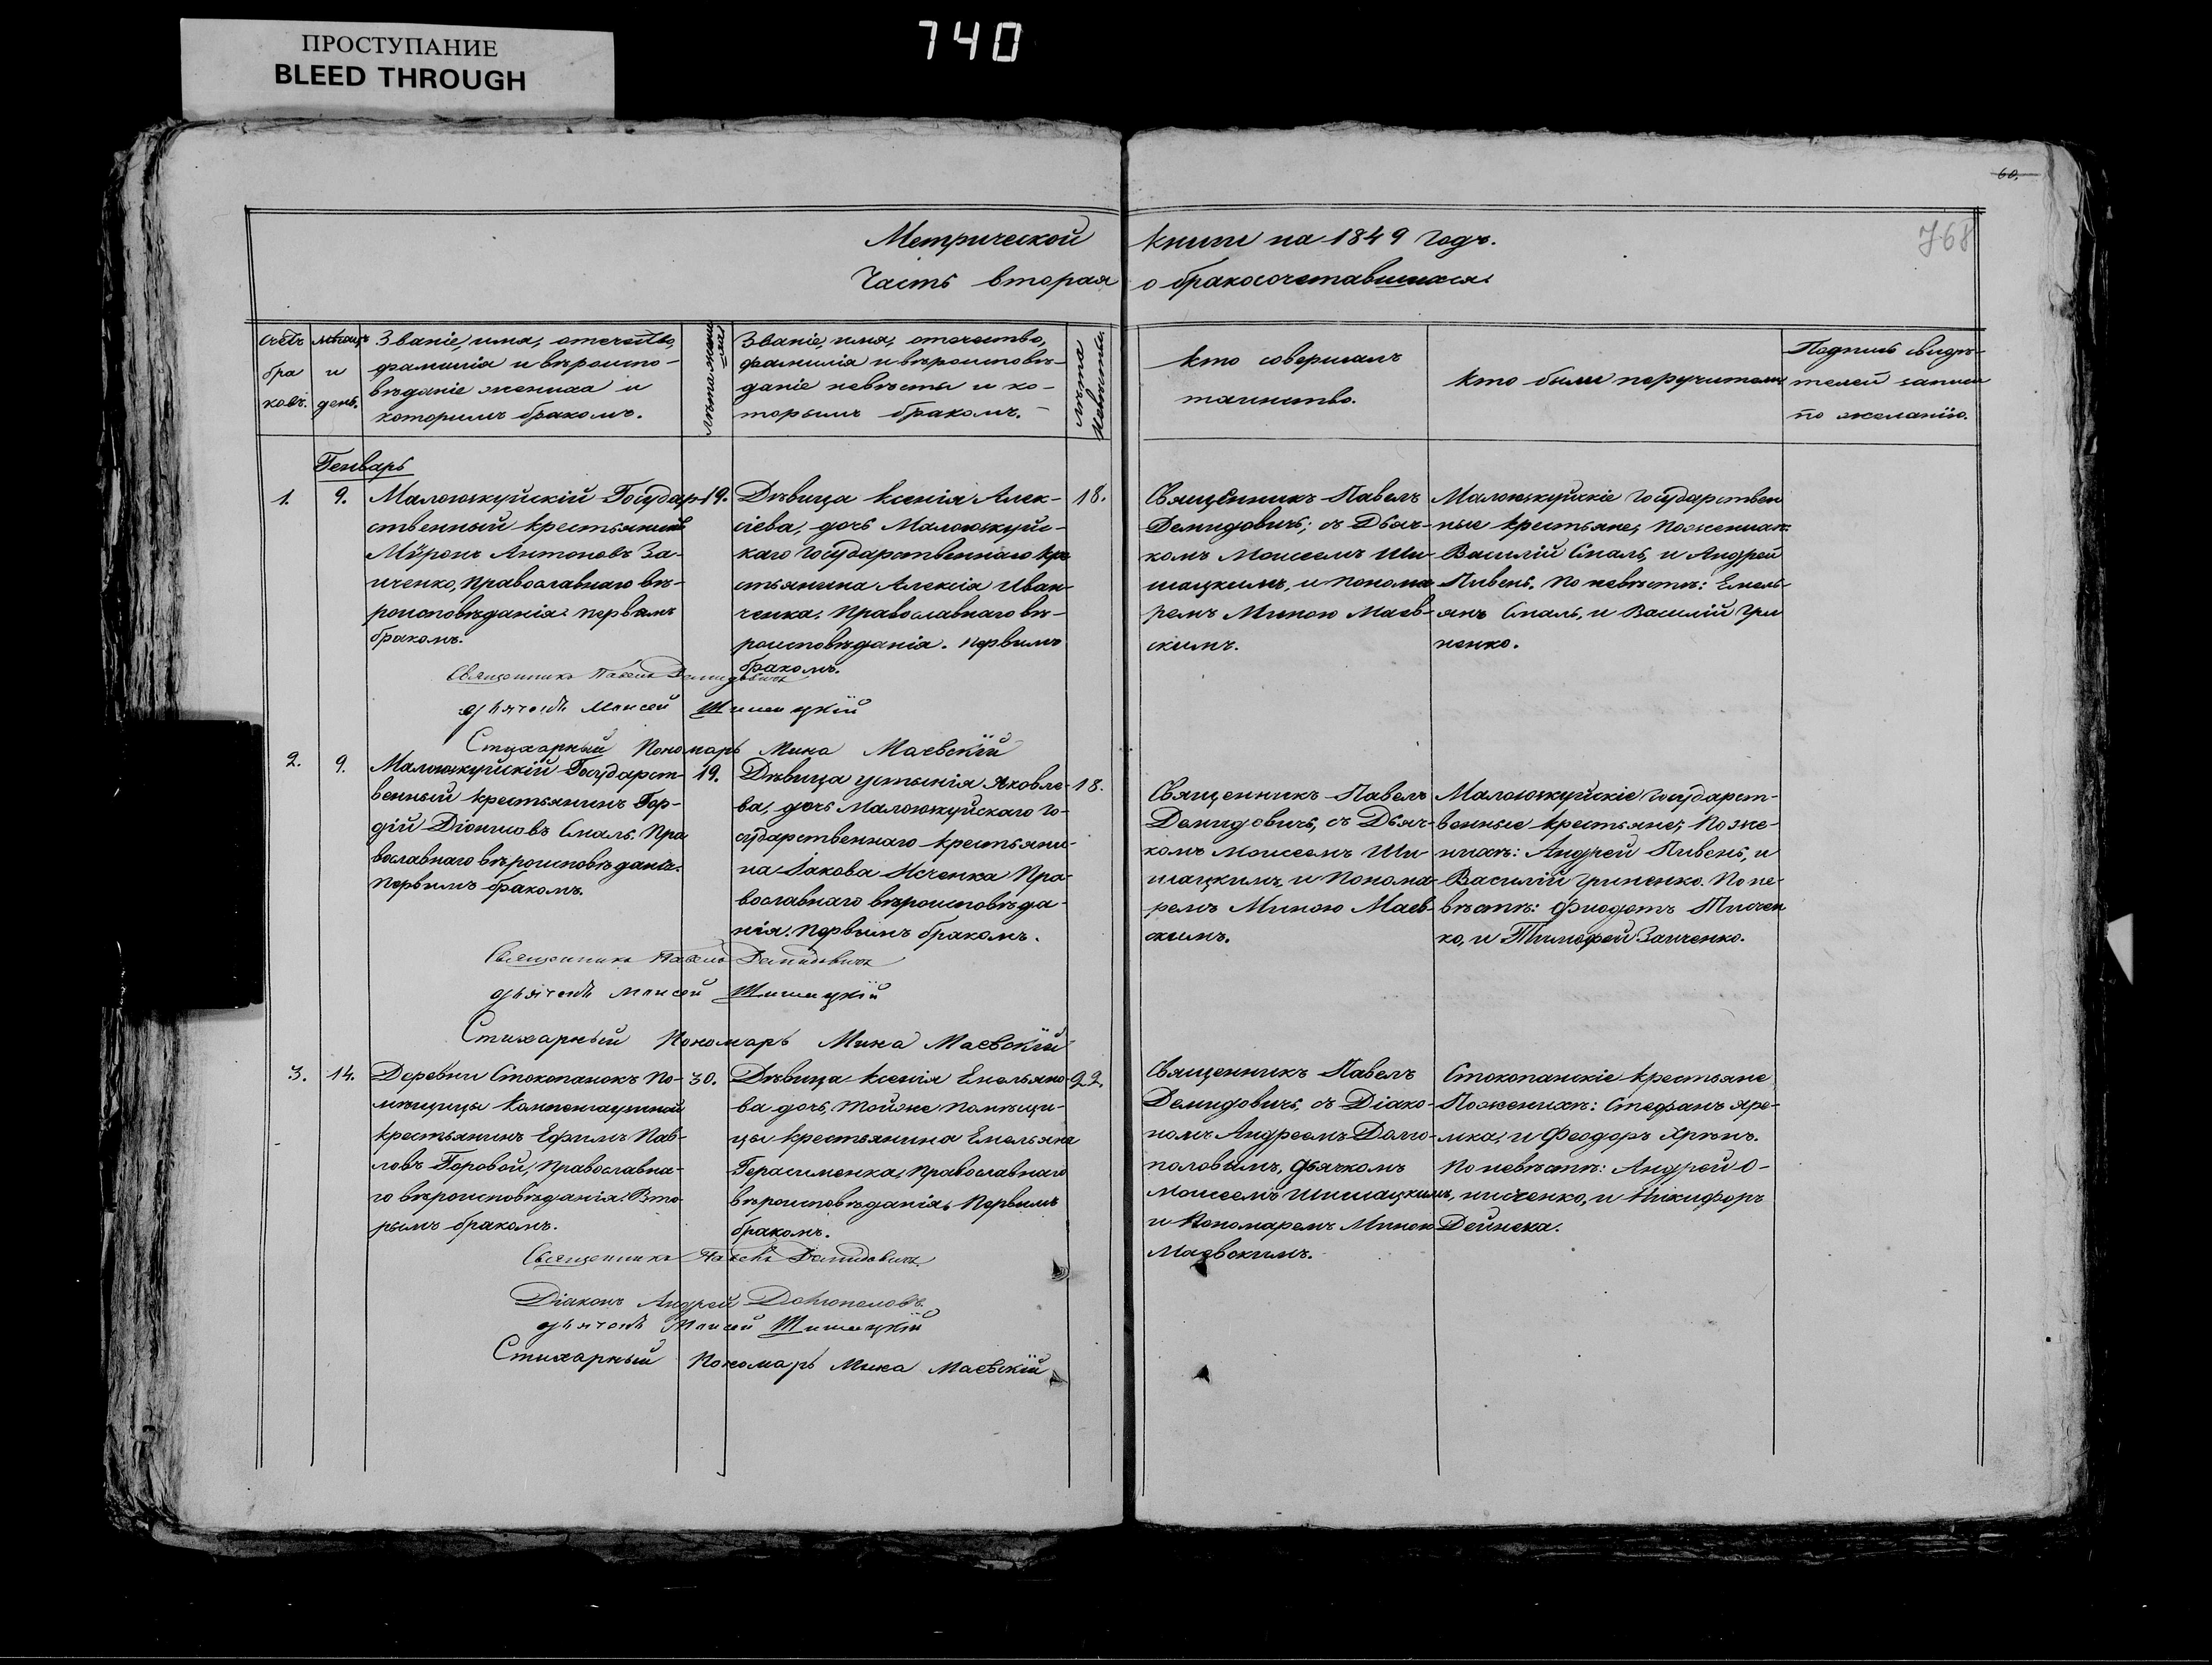 ПРОСТУПАНИЕ
BLEED THROUGH
740
60.
768
Метрической книги на 1849 годъ.
Часть вторая о бракосочетавшихся.
Счетъ
бра
ковъ.
мѣсяцъ
и
день.
Званіе, имя, отечество,
фамилія и вѣроиспо-
вѣданіе жениха и
которимъ бракомъ.
лѣта жени
ха
Званіе, имя, отечество,
фамилія и вѣроисповѣ-
даніе невѣсты и ко-
торымъ бракомъ.-
лѣта
невѣсты
Кто совершалъ
таинство.
Кто были поручители
Подпись свидѣ-
телей записи
по желанію.
Генварь
1.
9.
Малоюжкуйскій Государ-
ственный крестьянинъ
Миронъ Антоновъ За-
иченко, православнаго вѣ-
роисповѣданія. первымъ
бракомъ.
19.
Дѣвица Ксенія Алек-
сіева, дочь Малоюжкуйс-
каго Государственнаго кре
стьянина Алексія Иван
ченка, Православнаго вѣ-
роисповѣданія. Первимъ
бракомъ.
18.
Священникъ Павелъ
Демидовичь; съ Дьяч-
комъ Моисеемъ Ши-
шацкимъ, и понома
ремъ Миною Маев-
скимъ.
Малоюжкуйскіе Государствен
ные крестьяне, по женихѣ:
Василій Смаль, и Андрей
Пивень. По невѣстѣ: Емель-
янъ Смаль, и Василій Гри
ненко.
Священникъ Павелъ Демидовичъ
дьячокъ Моисей Шишацкій
Стихарный Пономарь Мина Маевскій
2.
9.
Малоюжкуйскій Государст-
венный крестьянинъ Гор-
дій Діонисовъ Смаль. Пра
вославнаго вѣроисповѣданія.
Первимъ бракомъ.
19.
Дѣвица Устинія Яковле-
ва, дочь Малоюжкуйскаго Го-
сударственнаго крестьяни-
на Іакова Исченка Пра-
вославнаго вѣроисповѣда-
нія. Первимъ бракомъ.
18.
Священникъ Павелъ
Демидовичь, съ Дьяч-
комъ Моисеемъ Ши-
шацкимъ, и Понома-
ремъ Миною Маев-
скимъ.
Малоюжкуйскіе Государст-
венные крестьяне, По же-
нихѣ: Андрей Пивень, и
Василій Гриненко. По не-
вѣстѣ: Фиодотъ Тисчен
ко, и Тимофей Заиченко.
Священникъ Павелъ Демидовичъ
дьячокъ Моисей Шишацкій
Стихарный Пономарь Мина Маевскій
3.
14.
Деревни Стокопанокъ По-
мѣщицы
крестьянинъ Ефимъ Пав-
ловъ Горовой, Православна-
го вѣроисповѣданія: Вто-
рымъ бракомъ.
30.
Дѣвица Ксенія Емельяно-
ва дочь, тойже помѣщи-
цы крестьянина Емельяна
Герасименка, Православнаго
вѣроисповѣданія, Первимъ
бракомъ.
22.
Священникъ Павелъ
Демидовичь, съ Діако-
номъ Андреемъ Долго-
половымъ, Дьячкомъ
Моисеемъ Шишацкимъ,
и Пономаремъ Миною
Маевскимъ.
Стокопанскіе крестьяне
По женихѣ: Стефанъ Яре-
мка, и Феодоръ Хрѣнъ.
По невѣстѣ: Андрей О-
нисченко, и Никифоръ
Дейнека.
Священникъ Павелъ Демидовичъ
Діаконъ Андрей Долгополовъ.
дьячокъ Моисей Шишацкій
Стихарный Пономарь Мина Маевскій